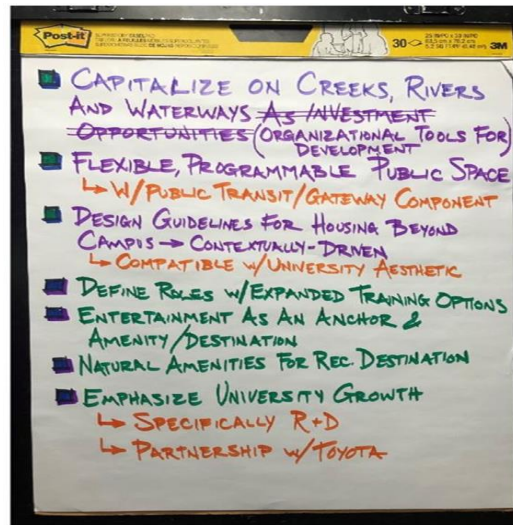 Post-it
30
25 IN x 30 IN
3M
CAPITALIZE ON CREEKS, RIVERS
AND WATERWAYS AS INVESTMENT
OPPORTUNITIES (ORGANIZATIONAL TOOLS FOR
DEVELOPMENT)
FLEXIBLE, PROGRAMMABLE PUBLIC SPACE
↳ W/PUBLIC TRANSIT/GATEWAY COMPONENT
DESIGN GUIDELINES FOR HOUSING BEYOND
CAMPUS → CONTEXTUALLY-DRIVEN
↳ COMPATIBLE W/UNIVERSITY AESTHETIC
DEFINE ROLES W/EXPANDED TRAINING OPTIONS
ENTERTAINMENT AS AN ANCHOR &
AMENITY/DESTINATION
NATURAL AMENITIES FOR REC. DESTINATION
EMPHASIZE UNIVERSITY GROWTH
↳ SPECIFICALLY R+D
↳ PARTNERSHIP W/TOYOTA